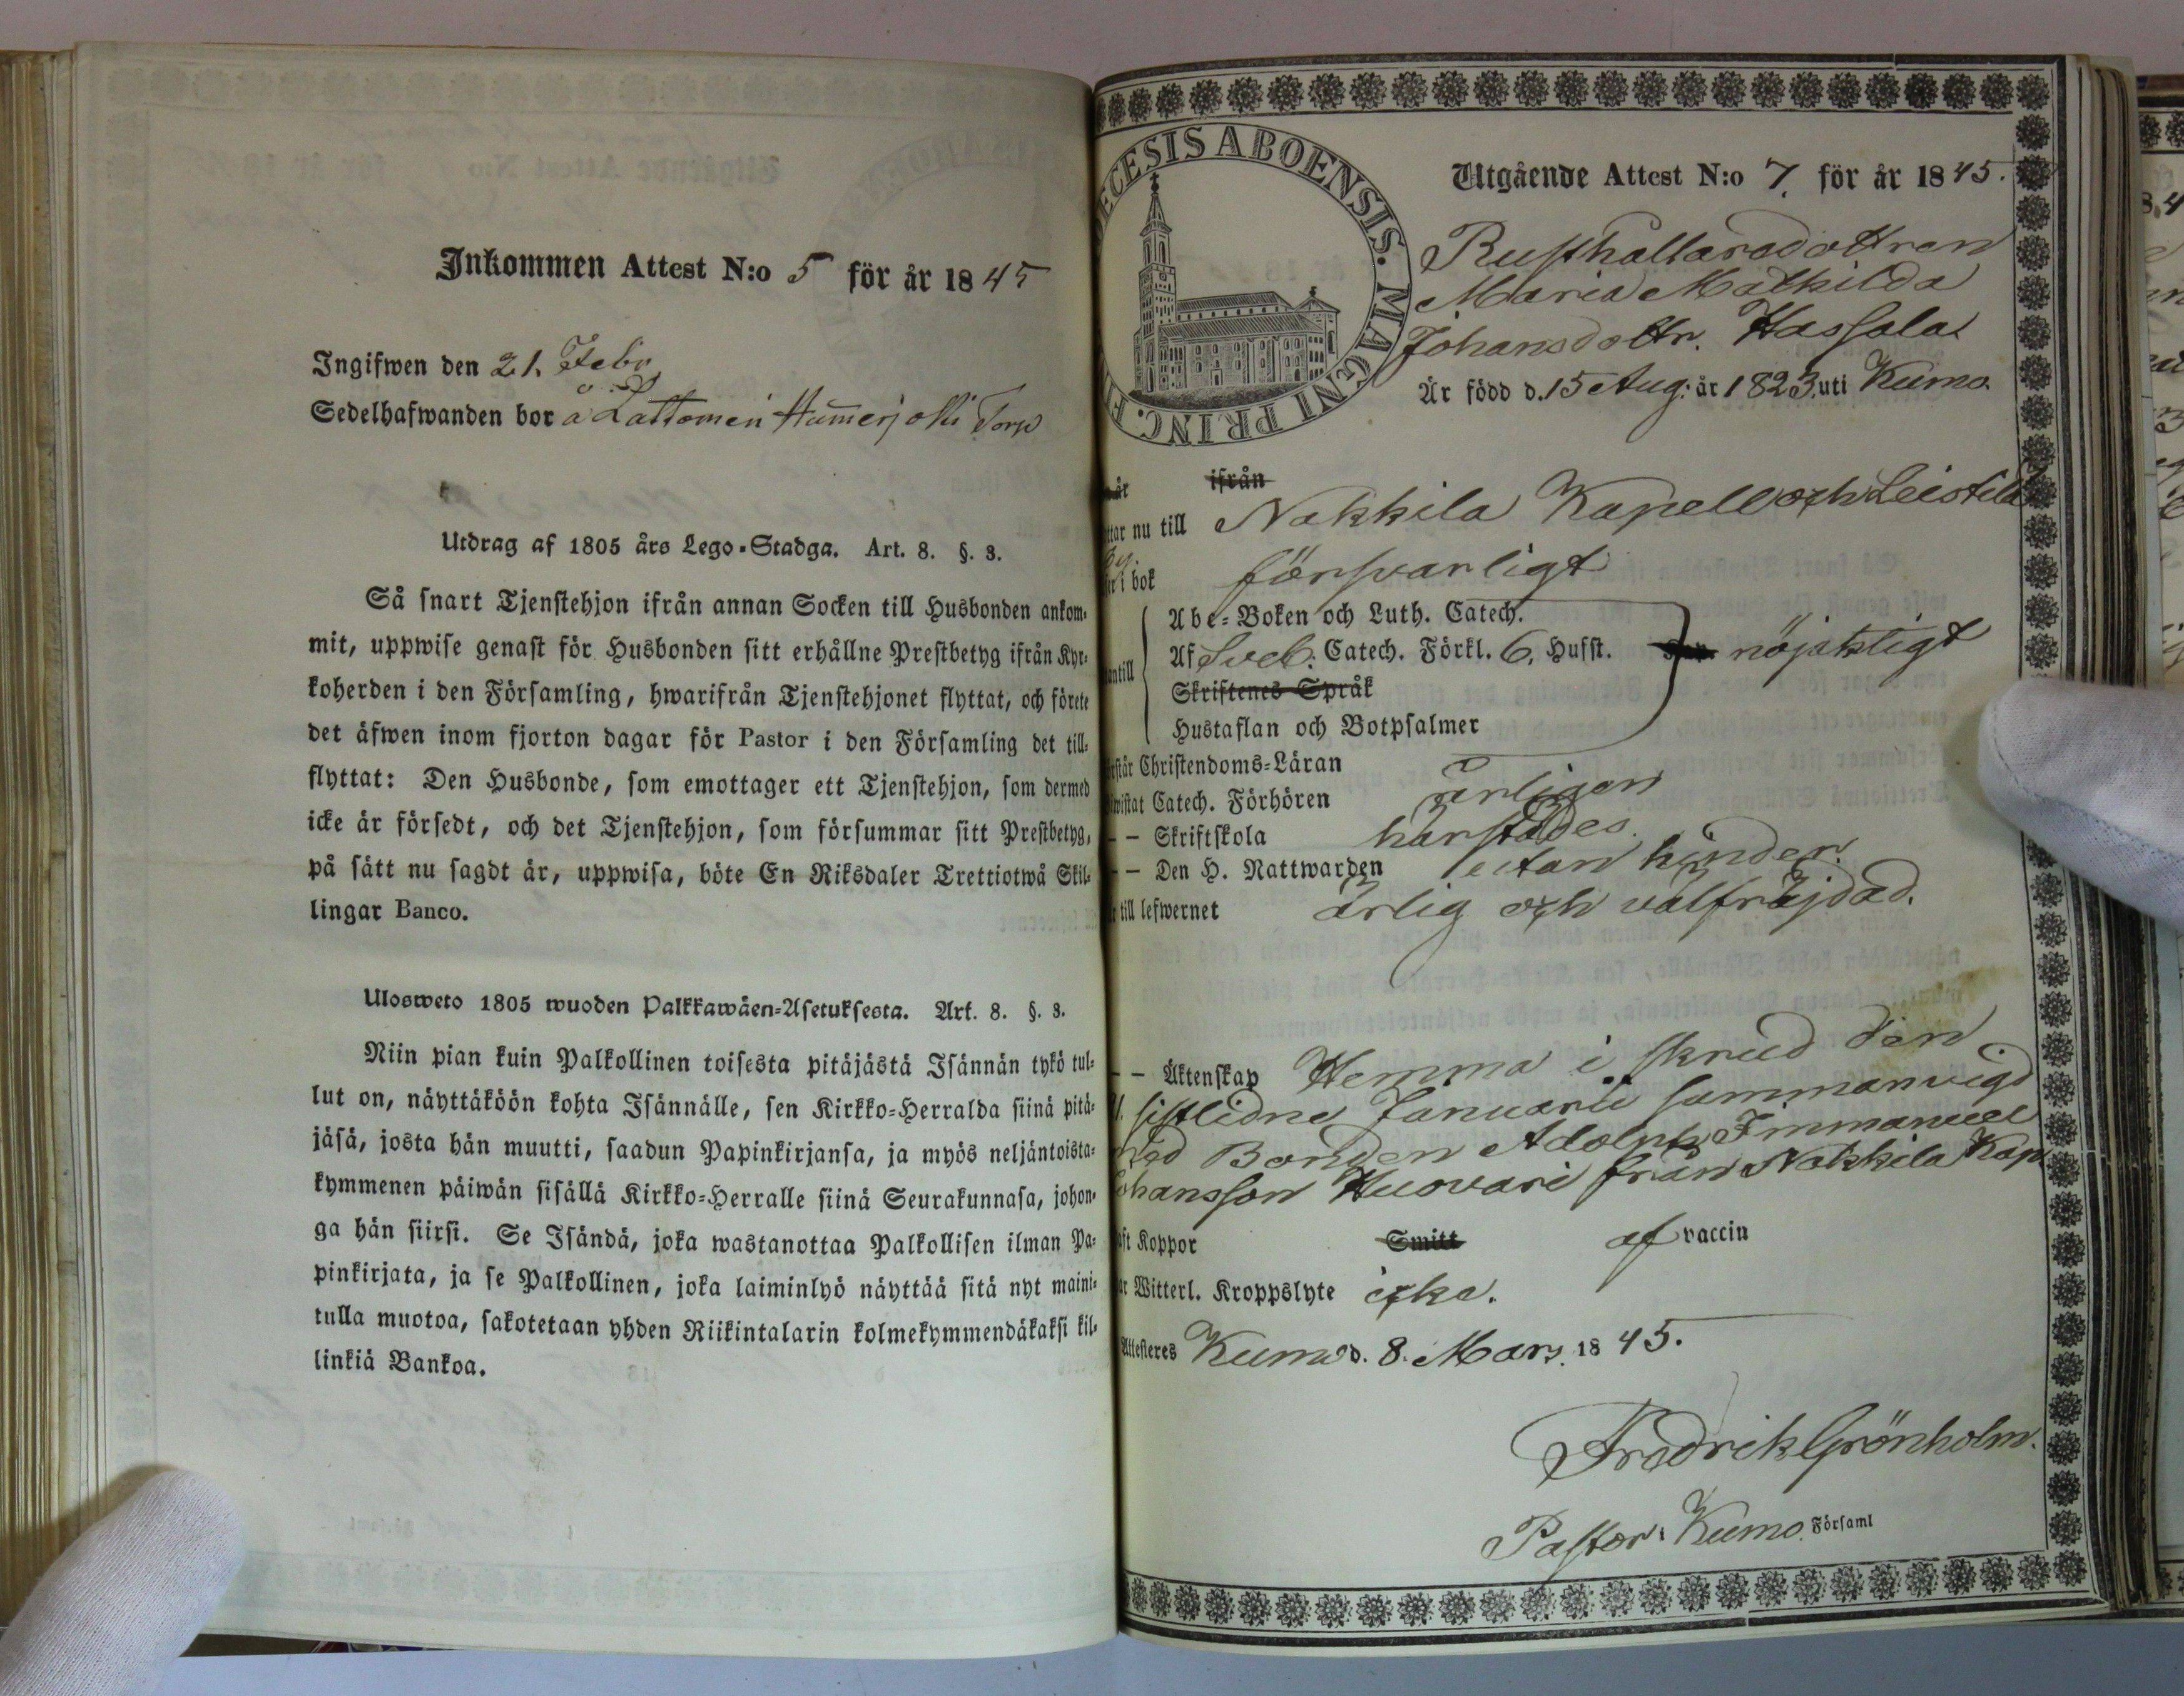 Inkommen Attest N:o 5 för år 1845
Ingifwen den 21. Febr
Sedelhafwanden bor å Lattomeri Humerjoki Torp
Utdrag af 1805 års Lego-Stadga. Art. 8. §. 3.
Så snart Tjenstehjon ifrån annan Socken till Husbonden ankom-
mit, uppwise genast för Husbonden sitt erhållne Prestbetyg ifrån Kyr-
koherden i den Församling, hwarifrån Tjenstehjonet flyttat, och förete
det äfwen inom fjorton dagar för Pastor i den Församling det till-
flyttat: Den Husbonde, som emottager ett Tjenstehjon, som dermed
icke är försedt, och det Tjenstehjon, som försummar sitt Prestbetyg,
på sätt nu sagdt är, uppwisa, böte En Riksdaler Trettiotwå Skil-
lingar Banco.
Ulosweto 1805 wuoden Palkkawäen-Asetuksesta. Art. 8. §. 3.
Niin pian kuin Palkollinen toisesta pitäjästä Isännän tykö tul-
lut on, näyttäköön kohta Isännälle, sen Kirkko-Herralda siinä pitä-
jäsä, josta hän muutti, saadun Papinkirjansa, ja myös neljäntoista-
kymmenen päiwän sisällä Kirkko-Herralle siinä Seurakunnasa, johon-
ga hän siirsi. Se Isändä, joka wastanottaa Palkollisen ilman Pa-
pinkirjata, ja se Palkollinen, joka laiminlyö näyttää sitä nyt maini-
tulla muotoa, sakotetaan yhden Riikintalarin kolmekymmendäkaksi kil-
linkiä Bankoa.
ECESIS ABOENSIS. MAGNI PRINC. F
Utgående Attest N:o 7. för år 1845.
Rusthållaredottren
Maria Mathilda
Johansdottr. Hassala
Är född d. 15 Aug: år 1823. uti Kumo.
är ifrån
ttar nu till Nakkila Kapell och Leistilä
by.
er i bok försvarligt
Abe-Boken och Luth. Catech.
antill Af Sveb. Catech. Förkl. 6, Husst. nöjaktigt
Skriftenes Språk
Hustaflan och Botpsalmer
rstår Christendoms-Läran
iwistat Catech. Förhören årligen
– – Skriftskola härstädes.
– – Den H. Nattwarden utan hinder.
r till lefwernet ärlig och välfräjdad.
– – Äktenskap Hemma i skrud den
sistlidne Januarii sammanvigd
med Bonden Adolph Immanuel
Johansson Huovari från Nakkila Kap
aft Koppor Smitt af vaccin
ar Witterl. Kroppslyte icke.
Attesteres Kumo d. 8. Mars. 1845.
Fredrik Grönholm.
Pastor i Kumo. Församl